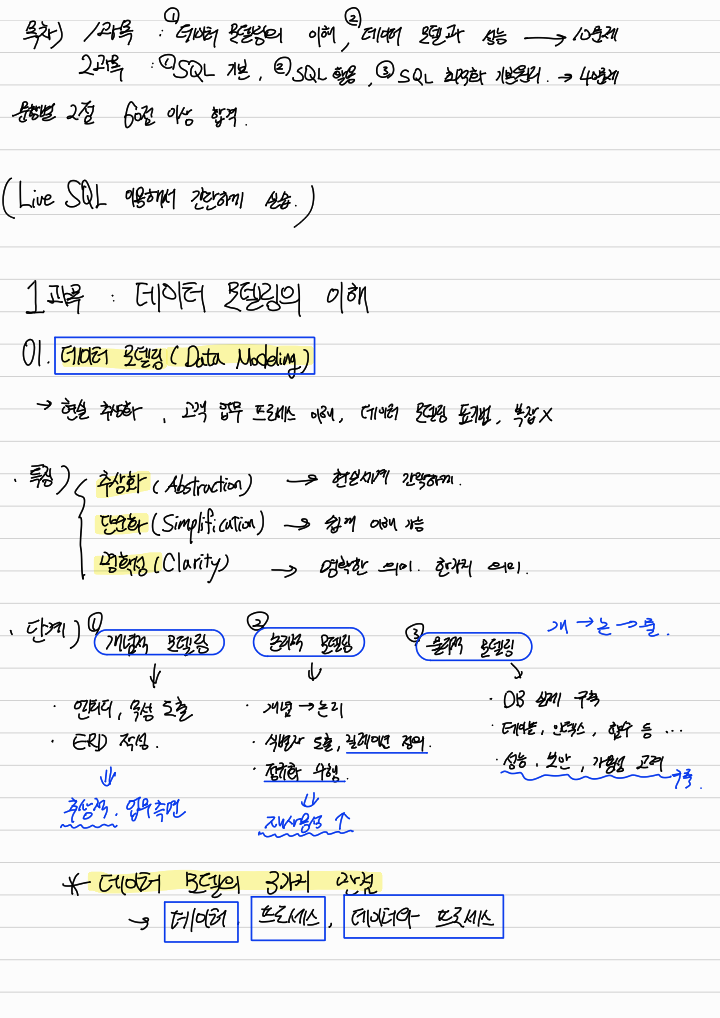 목차) 1과목 : ① 데이터 모델링의 이해, ② 데이터 모델과 성능 → 10문제
2과목 : ① SQL 기본, ② SQL 활용, ③ SQL 최적화 기본원리. → 40문제
문항별 2점 60점 이상 합격.
(Live SQL 이용해서 간단하게 실습.)
1과목 : 데이터 모델링의 이해
01. 데이터 모델링(Data Modeling)
→ 현실 추상화, 고객 업무 프로세스 이해, 데이터 모델링 표기법, 복잡X
· 특징) 추상화(Abstraction) → 현실세계 간략하게.
단순화(Simplification) → 쉽게 이해 가능
명확성(Clarity) → 명확한 의미. 한가지 의미.
· 단계) ① 개념적 모델링 ② 논리적 모델링 ③ 물리적 모델링 개→논→물.
· 엔터티, 속성 도출 · 개념→논리 · DB 실제 구축
· ERD 작성. · 식별자 도출, 릴레이션 정의. · 테이블, 인덱스, 함수 등 ...
⇓ · 정규화 수행. · 성능, 보안, 가용성 고려
추상적. 업무측면 ⇓ 구축.
재사용성 ↑
* 데이터 모델의 3가지 관점
→ 데이터, 프로세스, 데이터와 프로세스